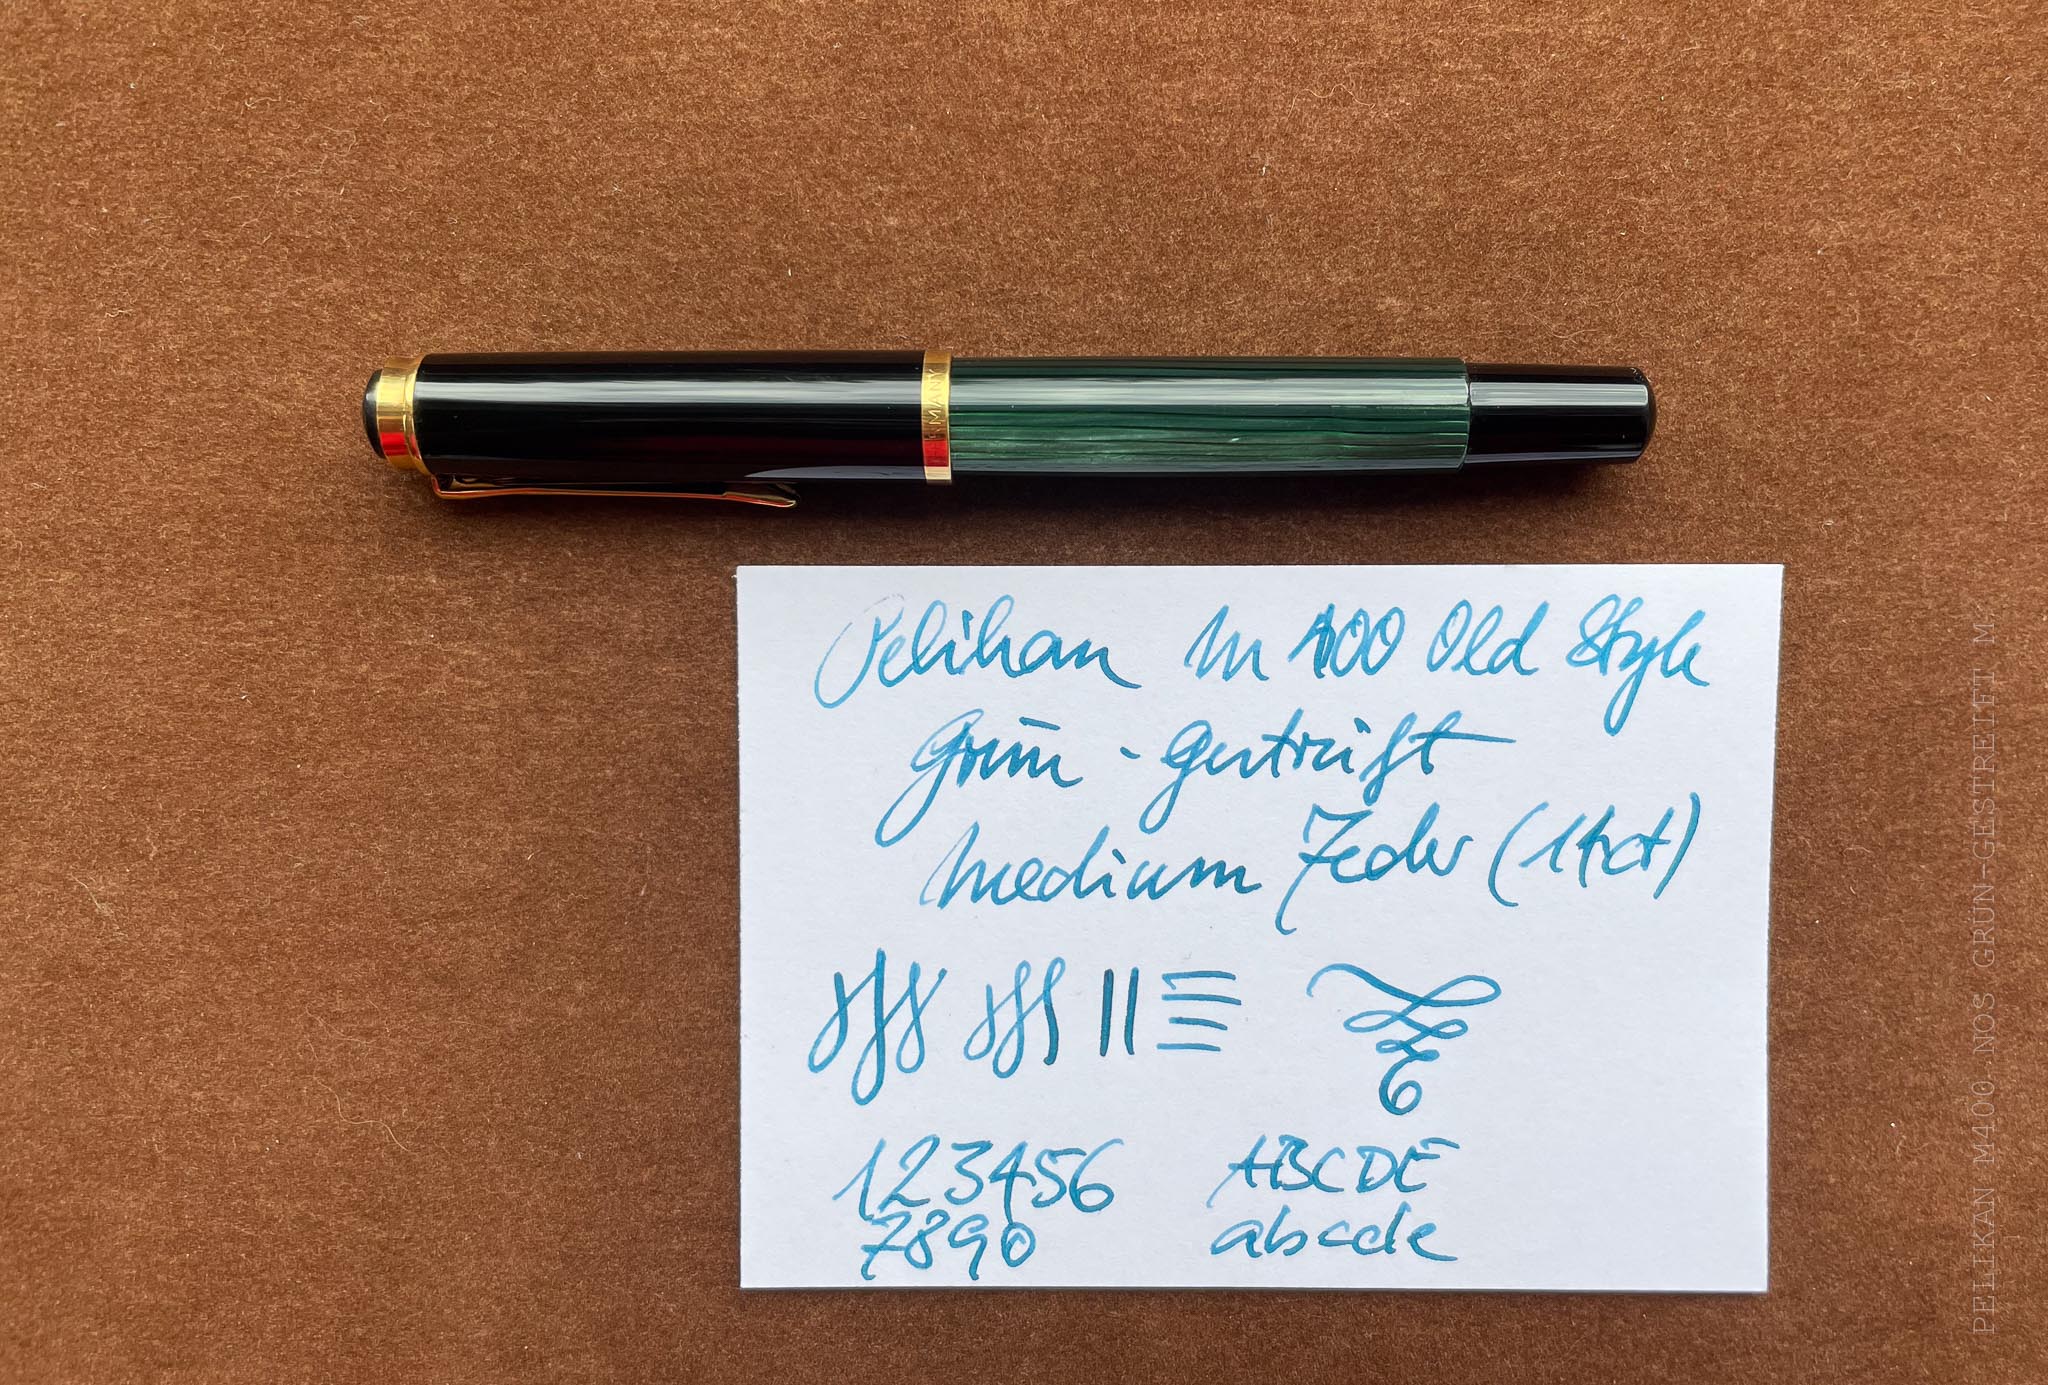 MANY
Pelikan M 400 Old Style
Grün - gestreift
medium Feder (14ct)
123456
7890
ABCDE
abcde
PELIKAN M400 NOS GRÜN-GESTREIFT M